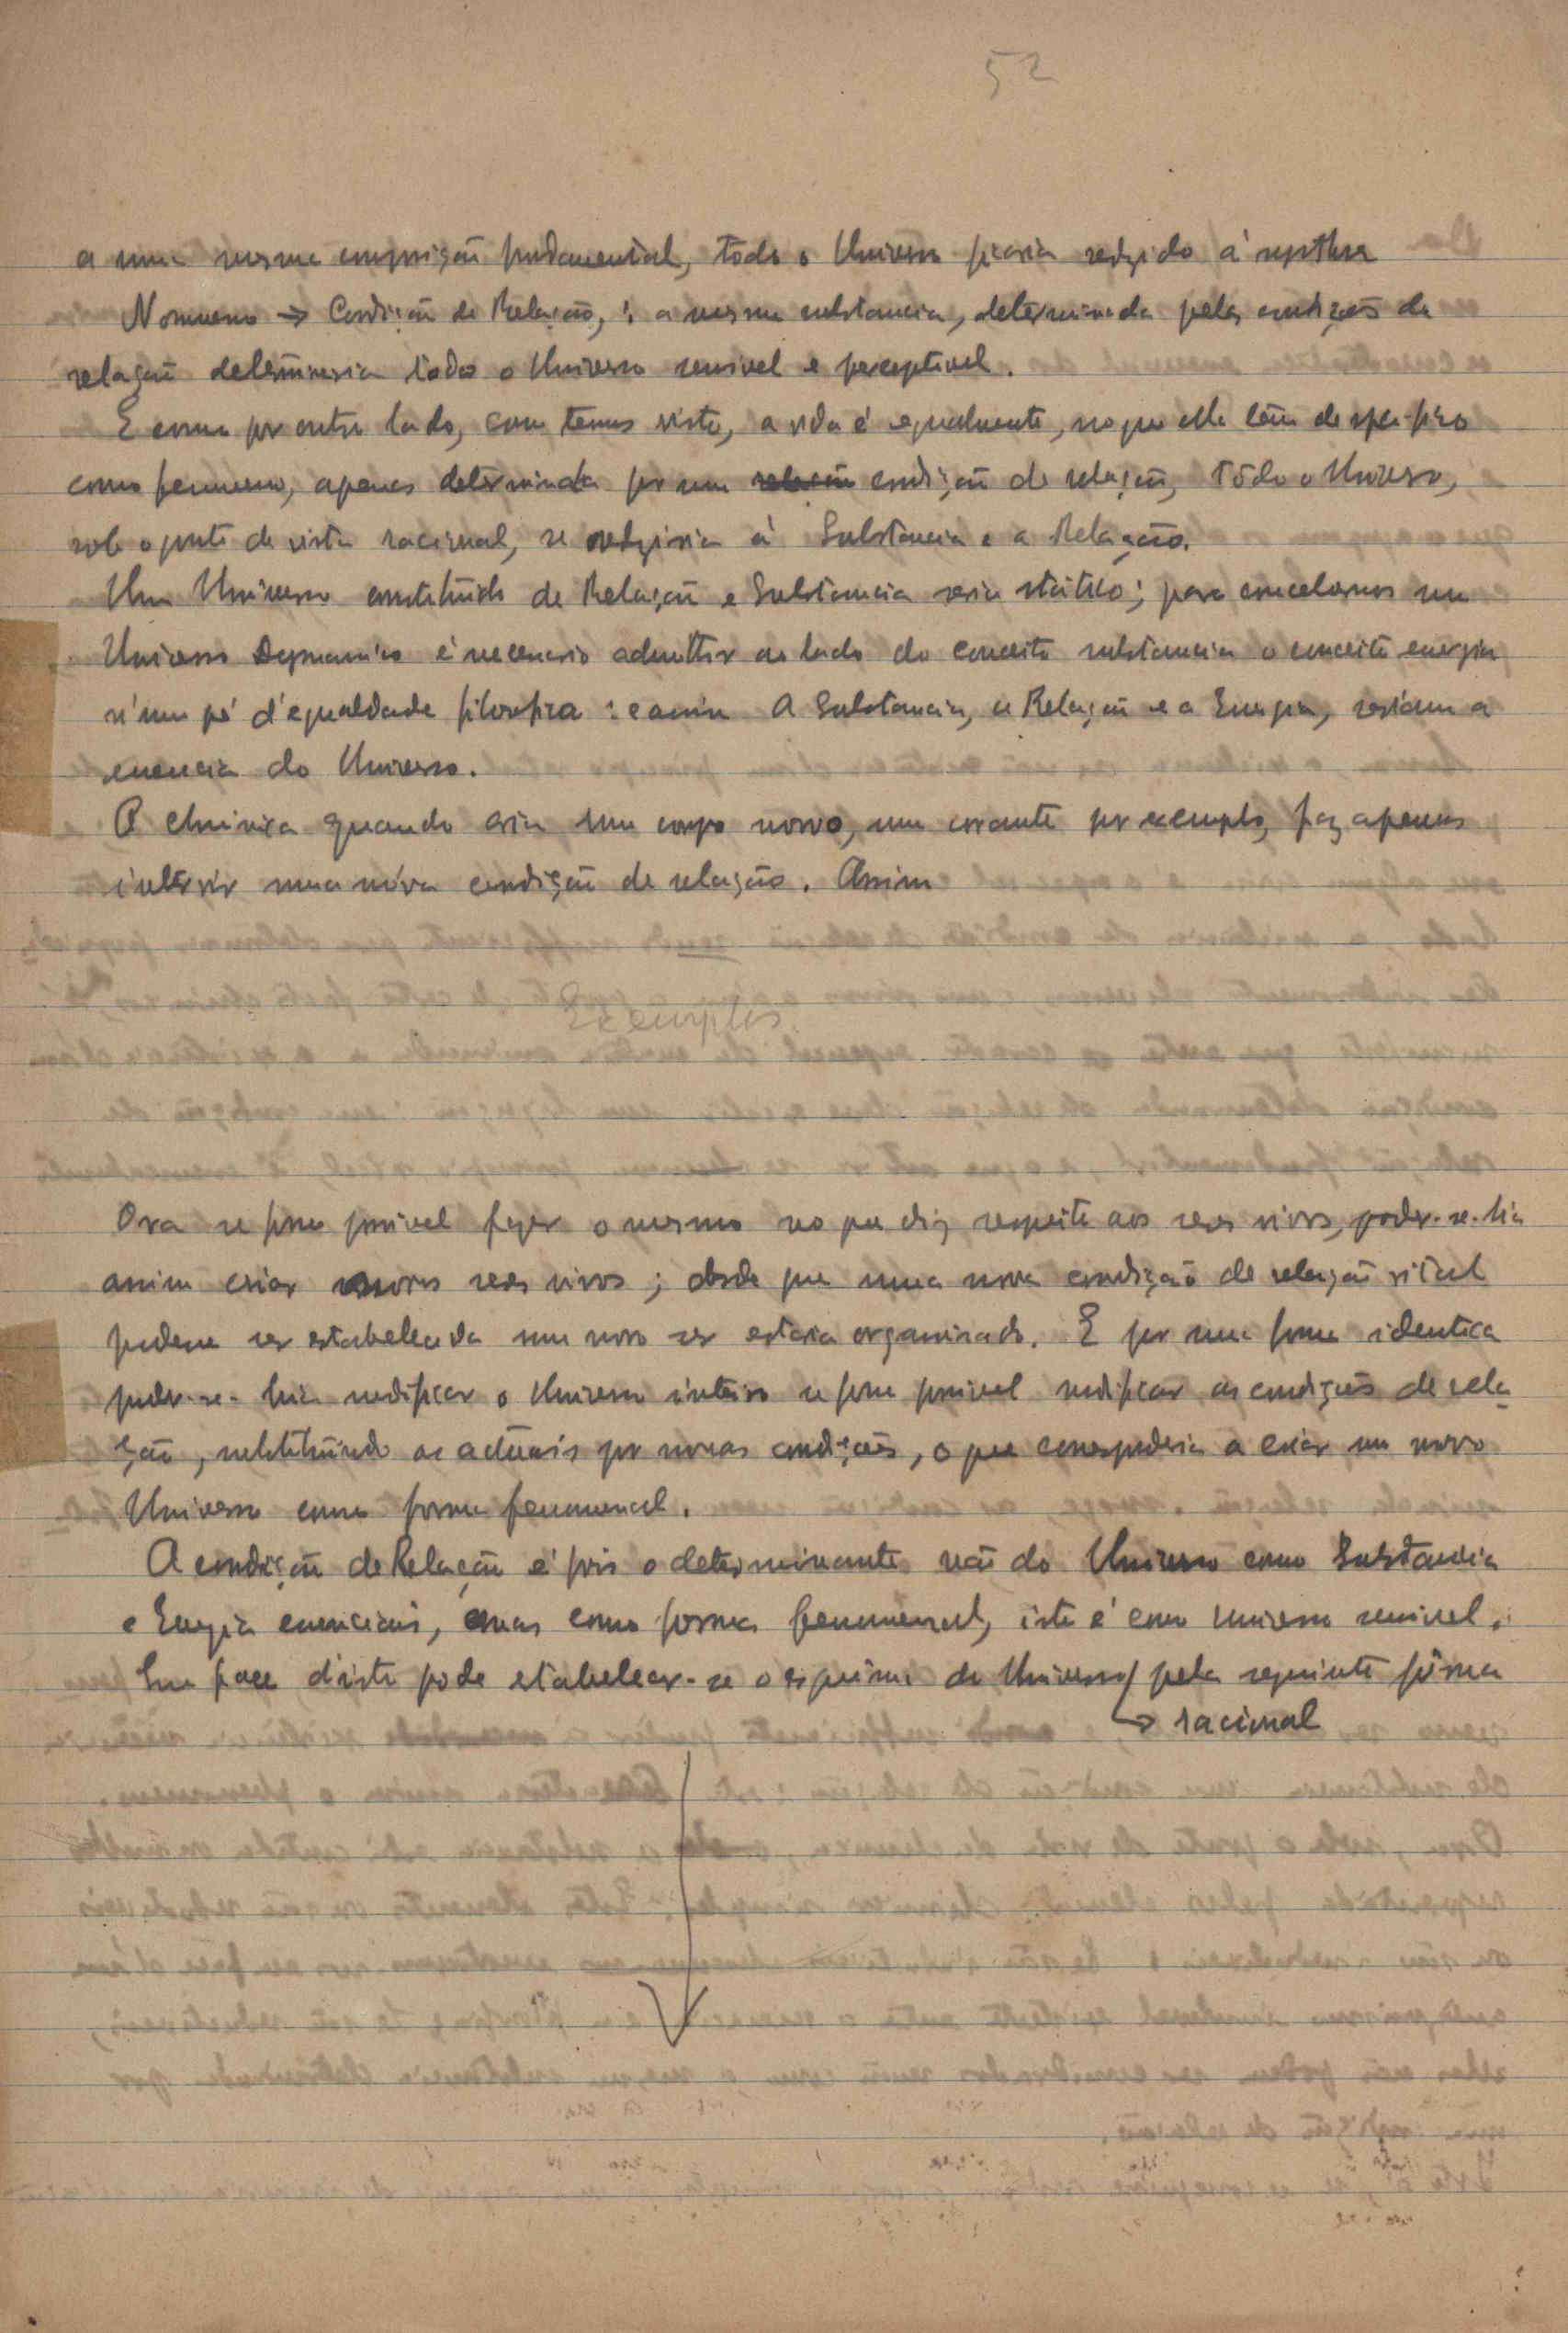 52
a uma mesma composição fundamental, todo o Universo ficaria reduzido á synthese
Noumeno → Condição de Relação, i. a mesma substancia, determinada pelas condições de
relação determinaria todo o Universo sensivel e perceptivel.
E como por outro lado, como temos visto, a vida é egualmente, no que ella tem de especifico
como fenomeno, apenas determinada por uma relação condição de relação, todo o Universo,
sob o ponto de vista racional, se reduziria á Substancia e a Relação.
Um Universo constituido de Relação e Substancia seria stático; para concebermos um
Universo Dynamico é necessario admittir ao lado do conceito substancia o conceito energia
n'um pé d'egualdade filosofica: e assim A Substancia, a Relação e a Energia, seriam a
essencia do Universo.
A chimica quando cria um corpo novo, um corante por exemplo, faz apenas
intervir uma nova condição de relação. Assim
Exemplos
Ora se fosse possivel fazer o mesmo no que diz respeito aos seres vivos, poder-se-hia
assim criar novos seres vivos; desde que uma nova condição de relação vital
pudesse ser estabelecida um novo ser estaria organisado. E por uma forma identica
poder-se-hia modificar o Universo inteiro se fosse possivel modificar as condições de rela-
ção, substituindo as actuais por novas condições, o que corresponderia a criar um novo
Universo como forma fenomenal.
A condição de Relação é pois o determinante não do Universo como Substancia
e Energia essenciais, mas como forma fenomenal, isto é como Universo sensivel.
Em face d'isto pode estabelecer-se o esquema do Universo pela seguinte fórma
→ racional